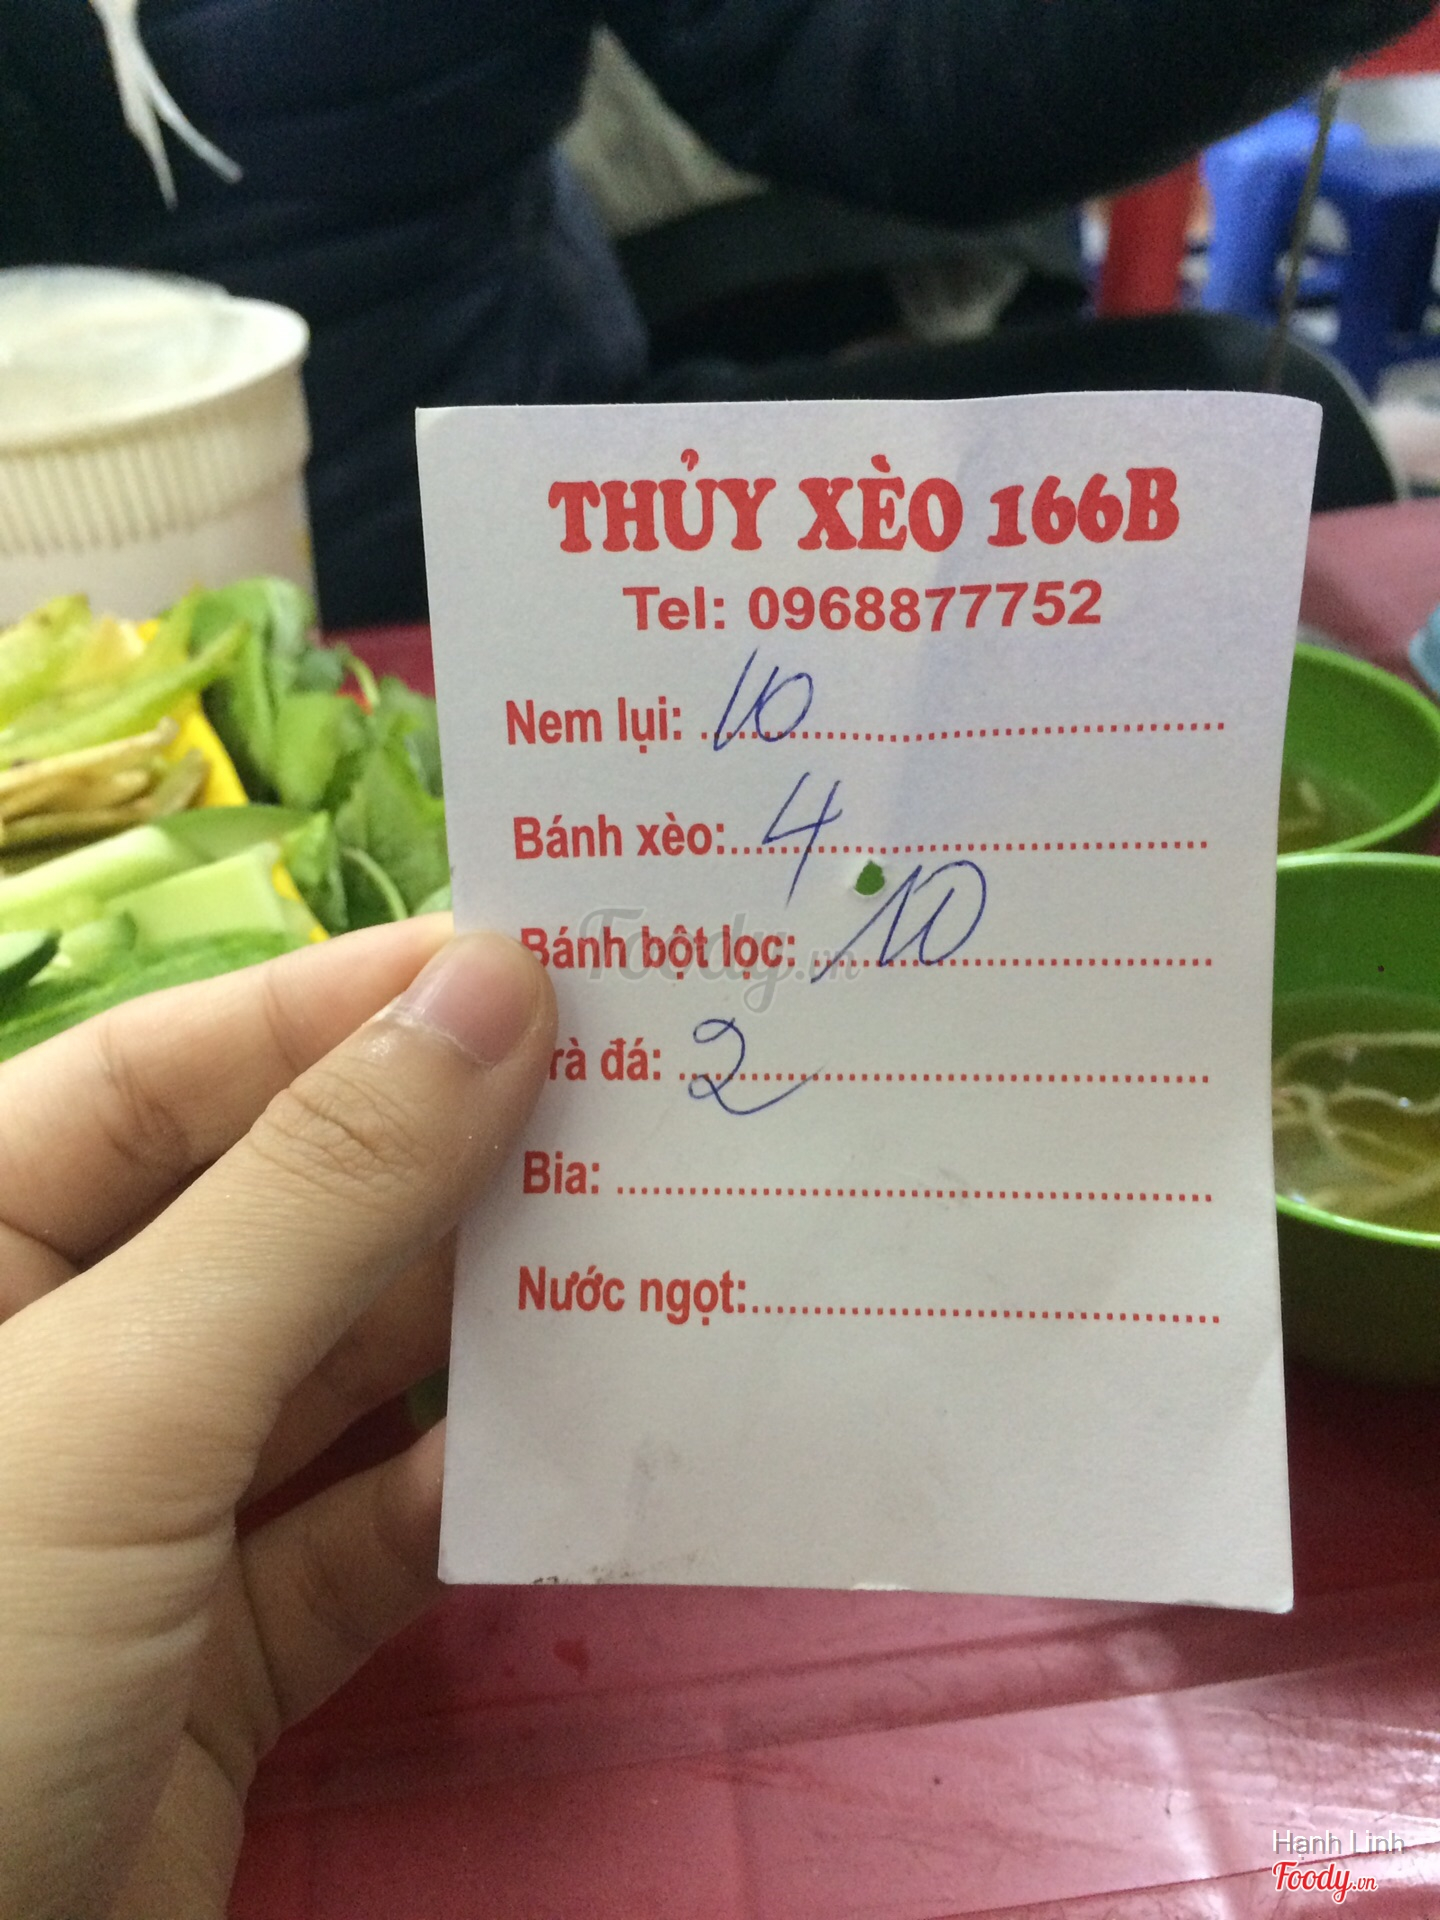 THỦY XÈO 166B
Tel: 0968877752
Nem lụi: 10
Bánh xèo: 4
Bánh bột lọc: 10
rà đá: 2
Bia:
Nước ngọt:
Foody.vn
Hạnh Linh
Foody.vn